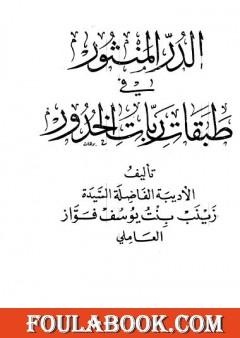 الدر المنثور
في
طبقات ربات الخدور
تأليف
الأديبة الفاضلة السيدة
زينب بنت يوسف فواز
العاملي
FOULABOOK.COM